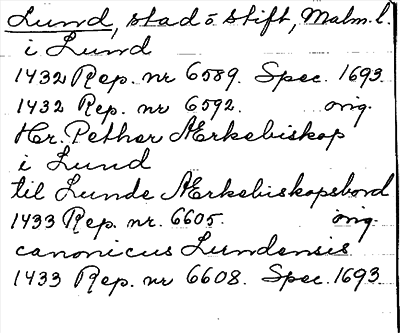 Lund, stad o stift, Malm. l.
i Lund
1432 Rep. nr 6589. Spec. 1693
1432 Rep. nr 6592. orig.
Hr. Pether Ærkebiskop
i Lund
til Lunde Ærkebiskopsbord
1433 Rep. nr. 6605. orig.
canonicus Lundensis
1433 Rep. nr 6608. Spec. 1693